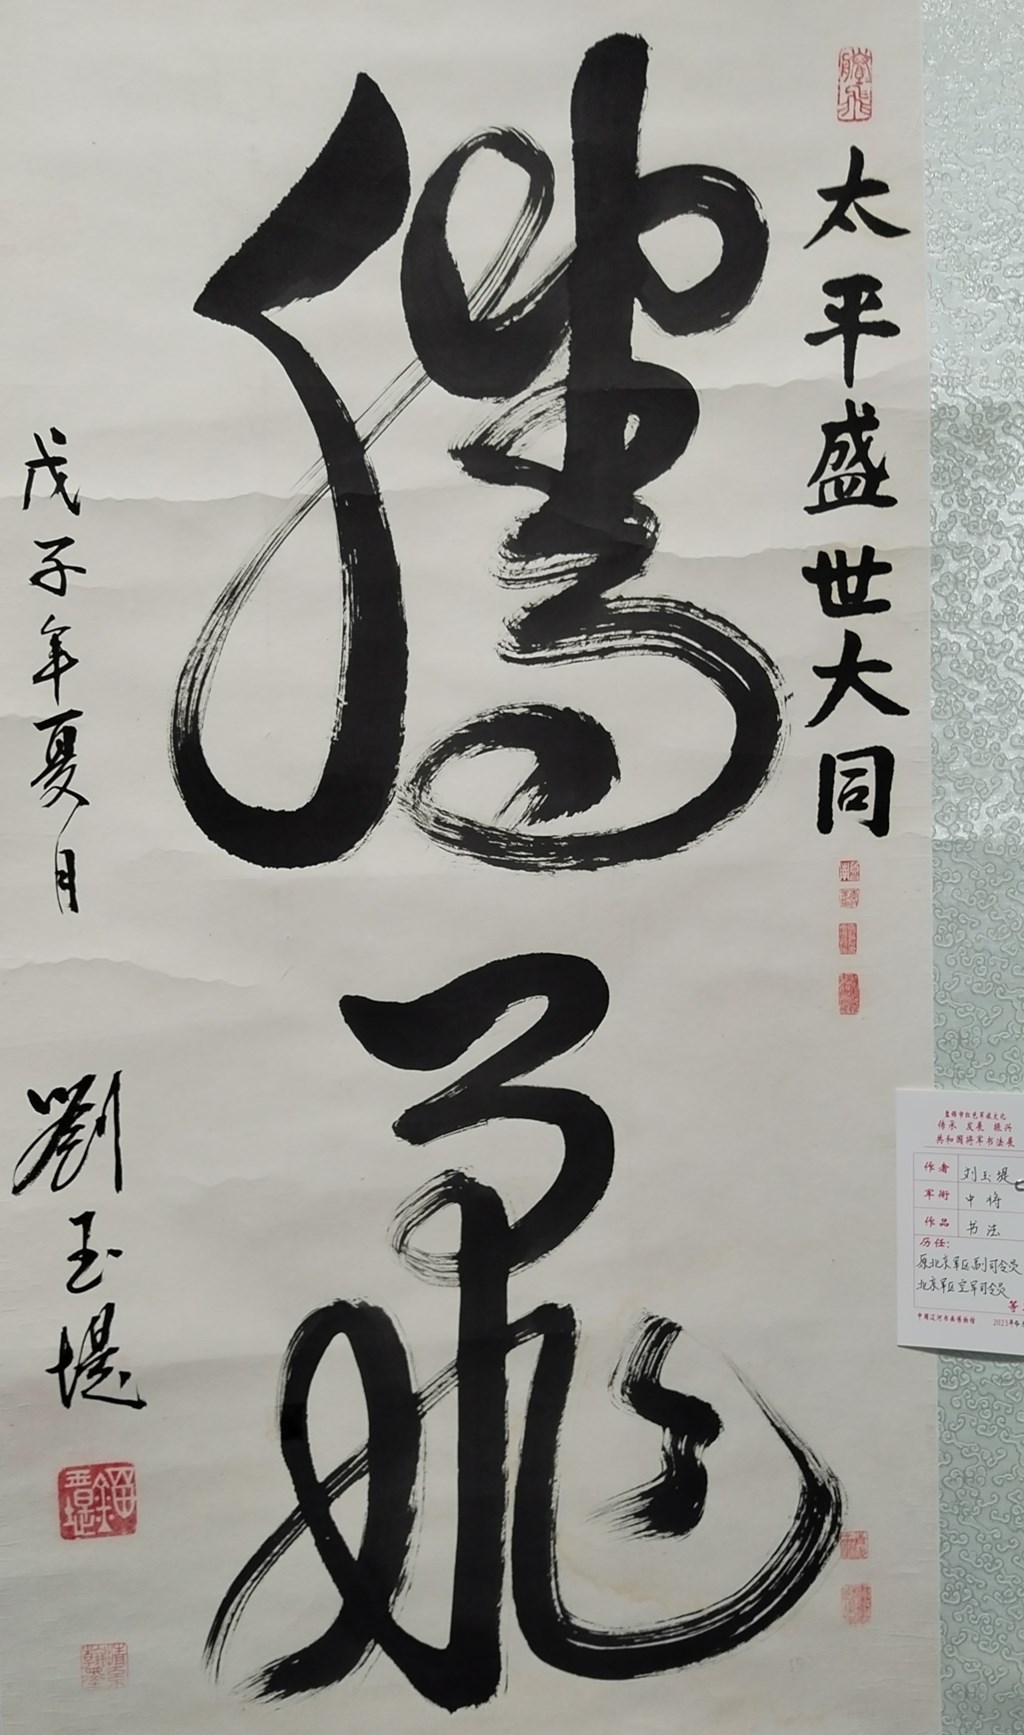 太平盛世大同
腾飞
戊子年夏月
劉玉堤
盘锦市红色军旅文化
传承 发展 振兴
共和国将军书法展
作者 刘玉堤
军衔 中将
作品 书法
历任:
原北京军区副司令员
北京军区空军司令员
等
中国辽河书画博物馆 2023年